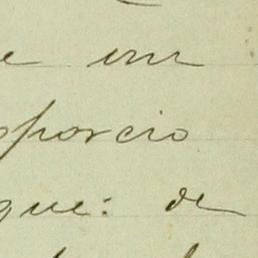 e um
oporcio
que: de